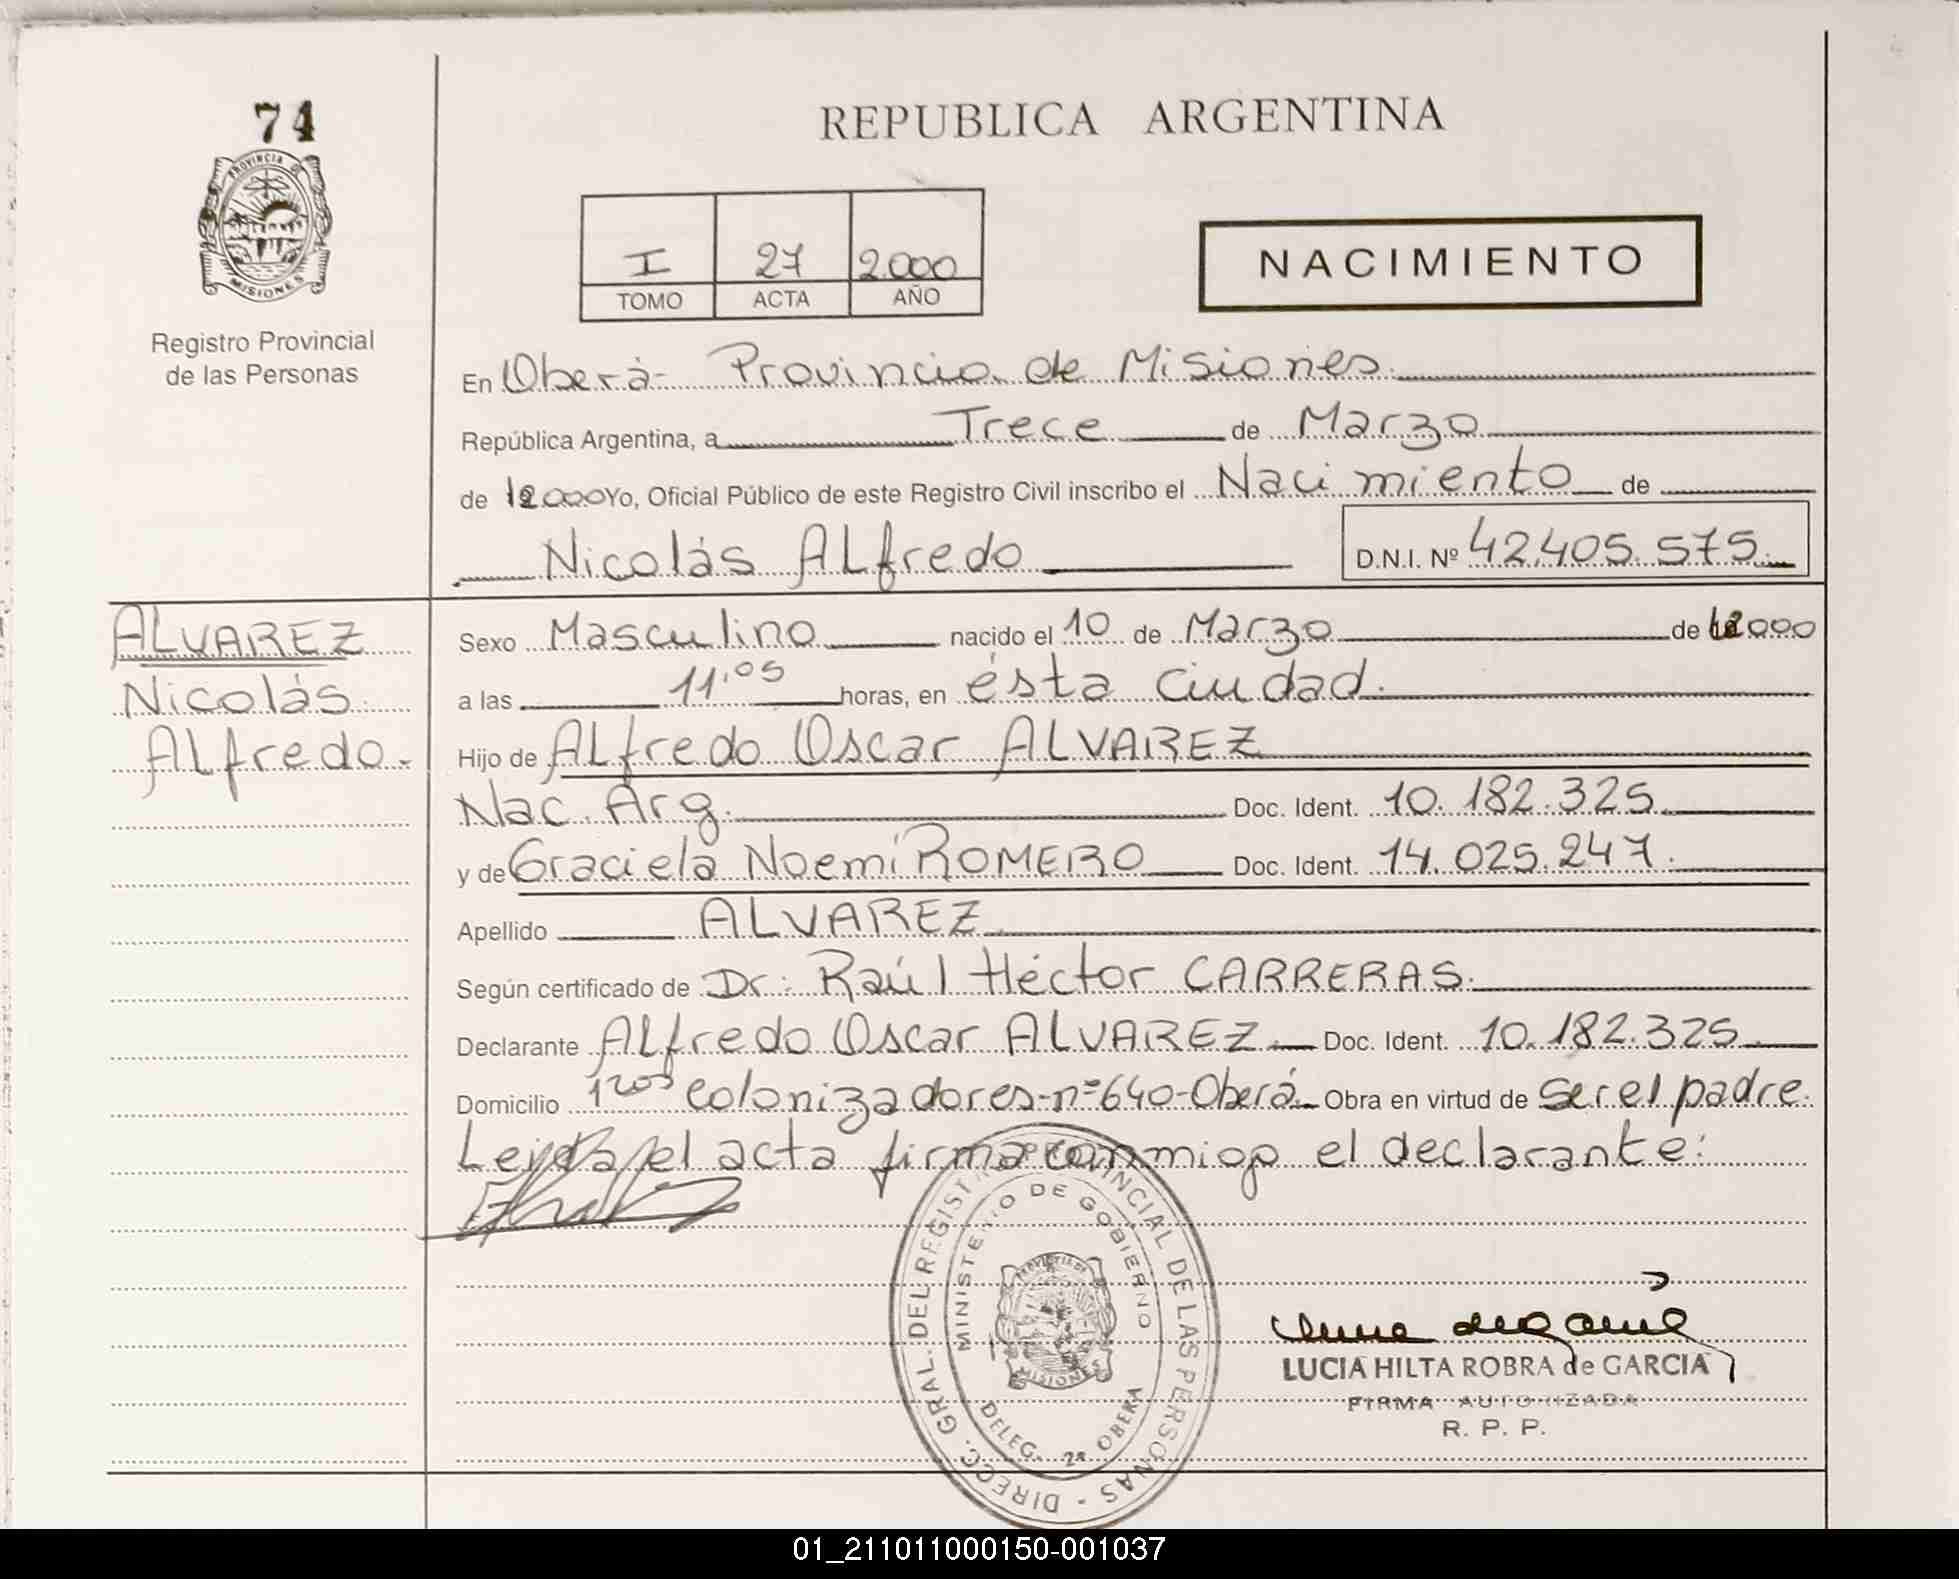 74
PROVINCIA DE
MISIONES
Registro Provincial
de las Personas
REPUBLICA ARGENTINA
I 27 2.000
TOMO ACTA AÑO
NACIMIENTO
En Oberá- Provincia de Misiones.
República Argentina, a Trece de Marzo
de 2.000 Yo, Oficial Público de este Registro Civil inscribo el Nacimiento de
Nicolás ALfredo D.N.I. Nº 42.405.575.
ALVAREZ
Nicolás
ALfredo.-
Sexo Masculino nacido el 10 de Marzo de 2000
a las 11.05 horas, en ésta Ciudad.
Hijo de ALfredo Oscar ALVAREZ
Nac. Arg. Doc. Ident. 10.182.325
y de Graciela Noemí ROMERO Doc. Ident. 14.025.247.
Apellido ALVAREZ
Según certificado de Dr: Raúl Héctor CARRERAS.
Declarante ALfredo Oscar ALVAREZ Doc. Ident. 10.182.325
Domicilio 1ros colonizadores-nº640-Oberá Obra en virtud de ser el padre.
Leída el acta firma conmigo el declarante:
DIRECC. GRAL. DEL REGISTRO PROVINCIAL DE LAS PERSONAS -
MINISTERIO DE GOBIERNO
PROVINCIA DE
MISIONES
DELEG. 2ª OBERA
LUCIA HILTA ROBRA de GARCIA
FIRMA AUTORIZADA
R. P. P.
01_211011000150-001037